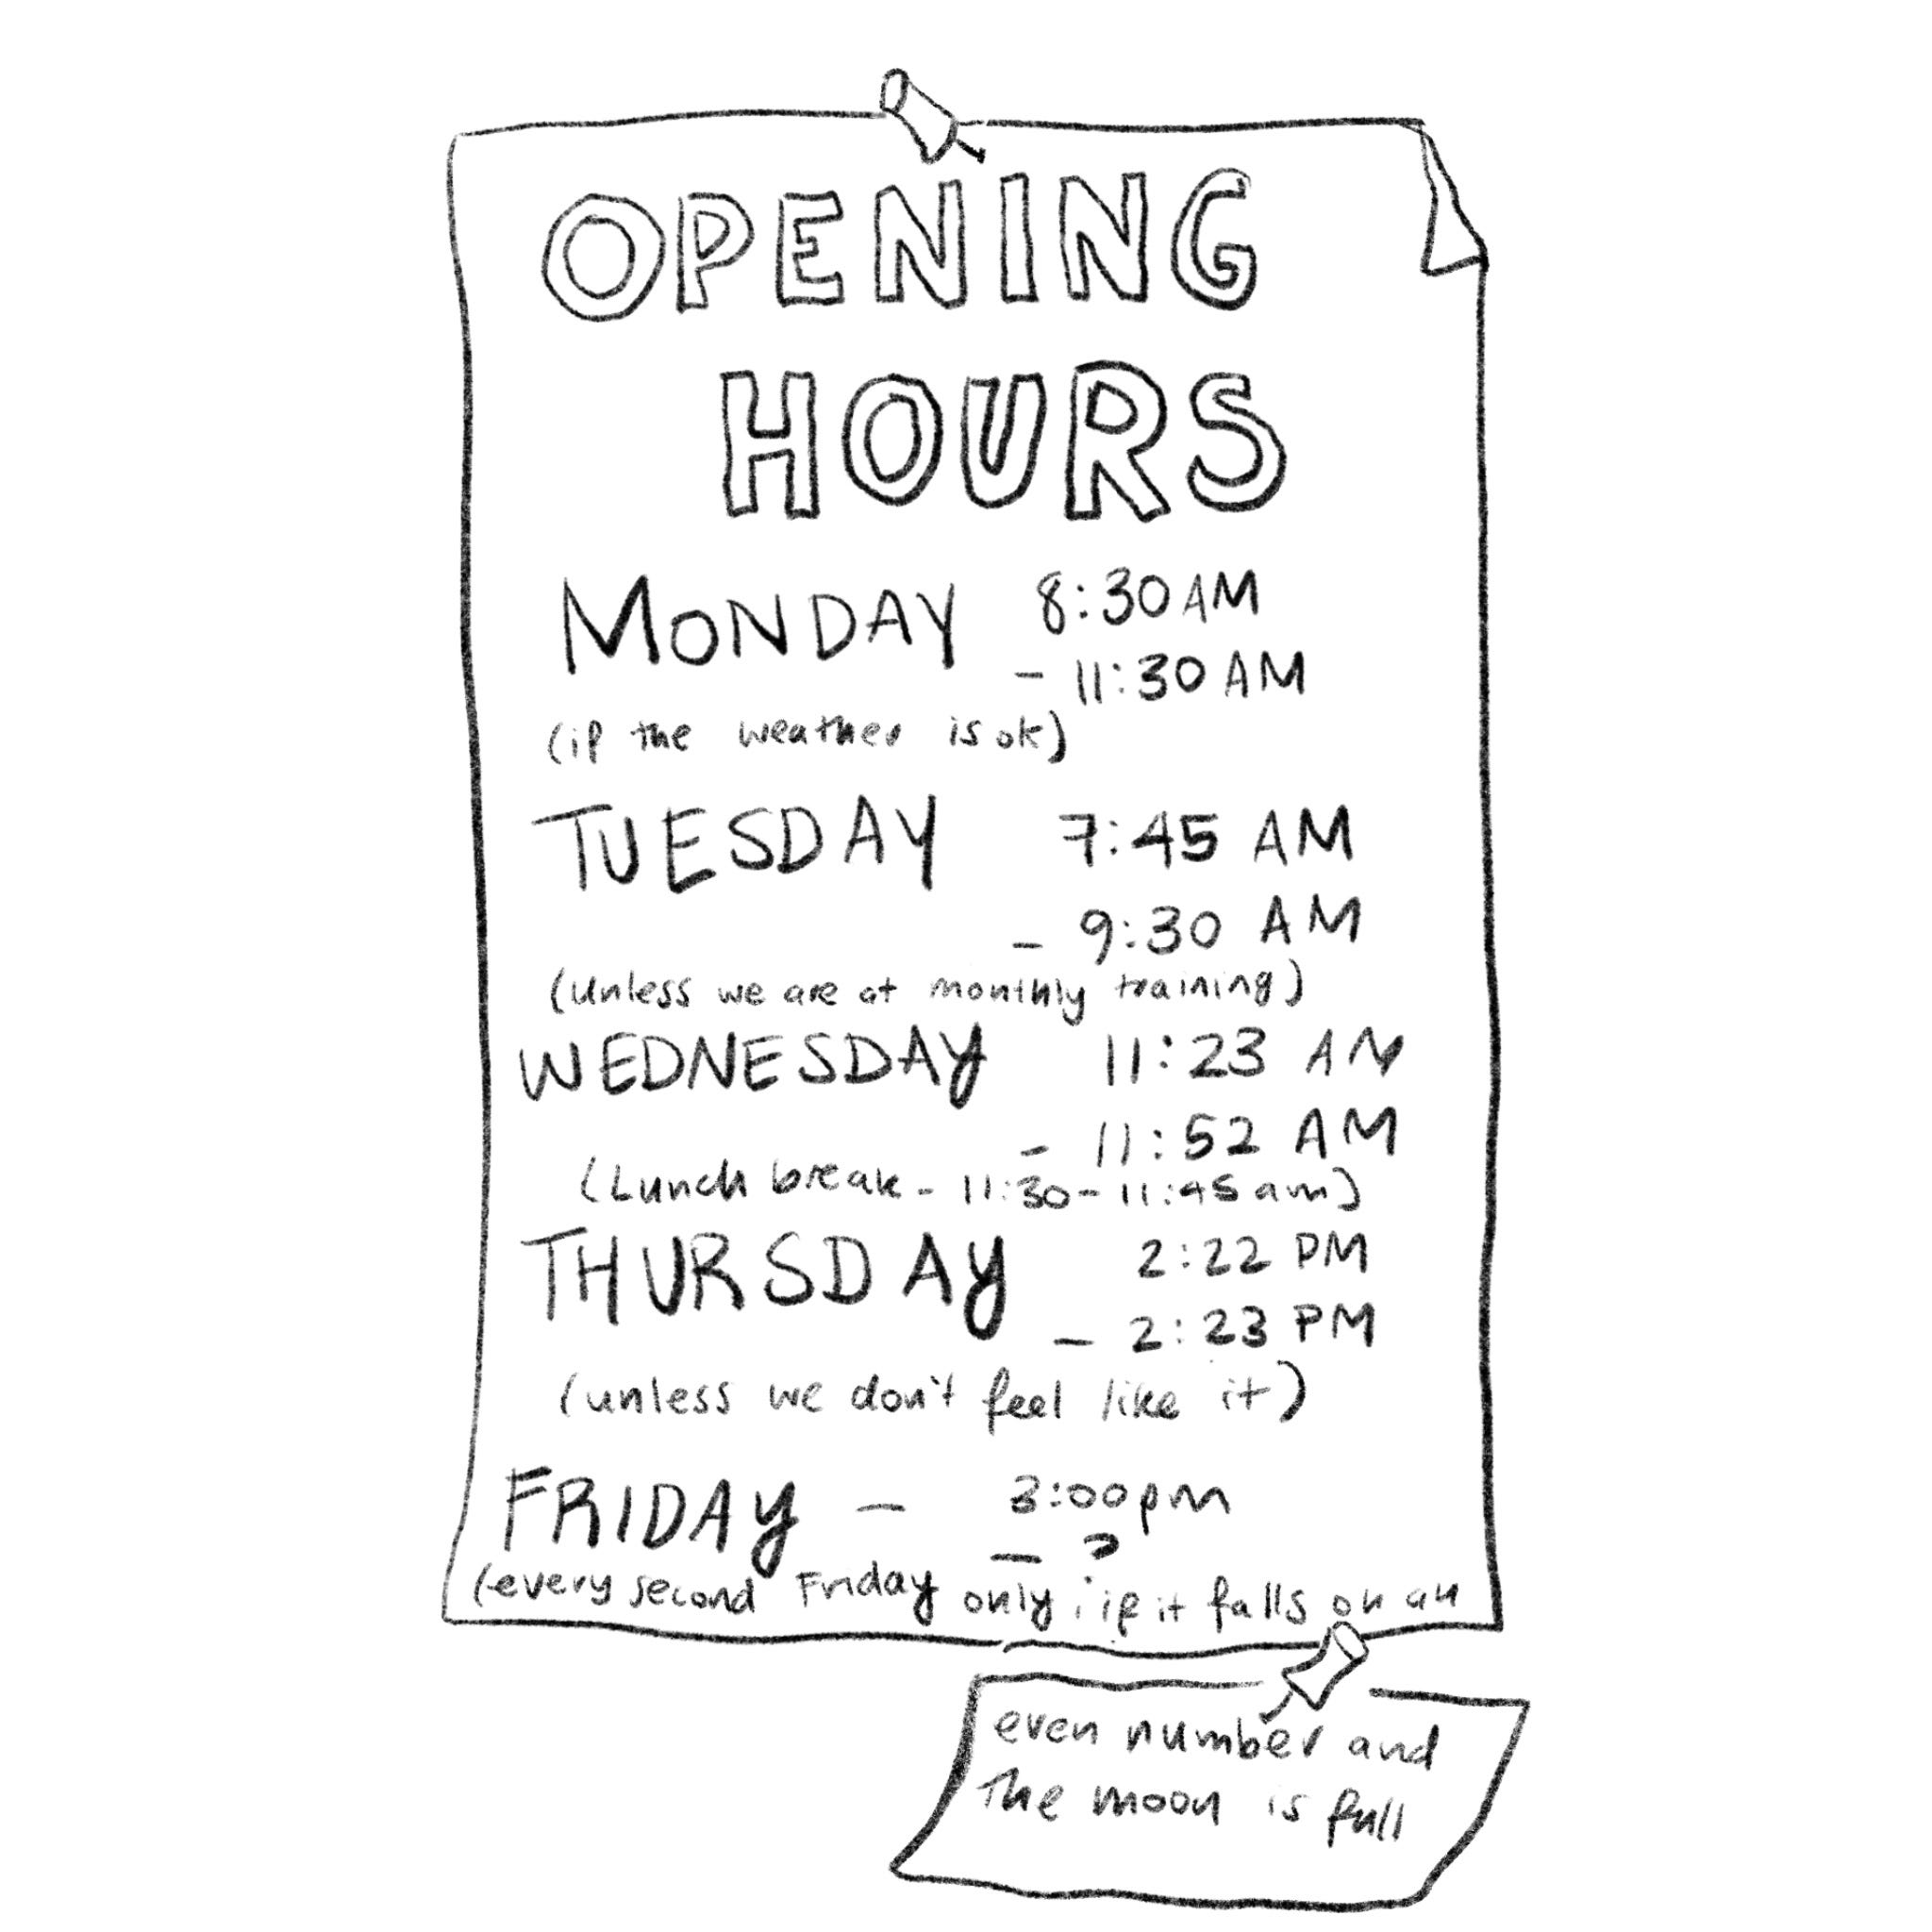 OPENING
HOURS
MONDAY 8:30 AM
- 11:30 AM
(if the weather is ok)
TUESDAY 7:45 AM
- 9:30 AM
(unless we are at monthly training)
WEDNESDAY 11:23 AM
- 11:52 AM
(Lunch break - 11:30 - 11:45 am)
THURSDAY 2:22 PM
- 2:23 PM
(unless we don't feel like it)
FRIDAY - 3:00pm
- ?
(every second Friday only; if it falls on an
even number and
The moon is full